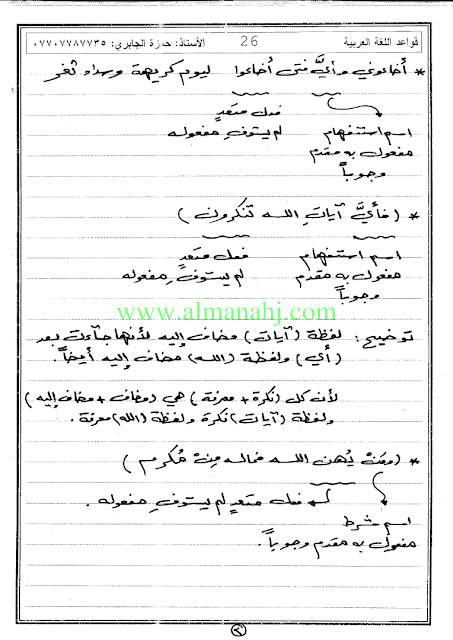 قواعد اللغة العربية 26 الأستاذ: حمزة الجابري: ٠٧٧٠٧٧٨٧٧٣٥
* أضاعوني وأيَّ فتى أضاعوا ليوم كريهة وسداد ثغر
فعل متعدٍ
اسم استفهام لم يستوفِ مفعوله
مفعول به مقدم
وجوباً
* (فأيَّ آياتِ الله تنكرون)
اسم استفهام فعل متعدٍ
مفعول به مقدم لم يستوفِ مفعوله
وجوباً
www.almanahj.com
توضيح: لفظة (آيات) مضاف إليه لأنها جاءت بعد
(أي) ولفظة (الله) مضاف إليه أيضاً.
لأن كل (نكرة + معرفة) هي (مضاف + مضاف إليه)
ولفظة (آيات) نكرة ولفظة (الله) معرفة.
* (ومَنْ يُهن الله فماله مِنْ مُكرم)
فعل متعدٍ لم يستوفِ مفعوله.
اسم شرط
مفعول به مقدم وجوباً.